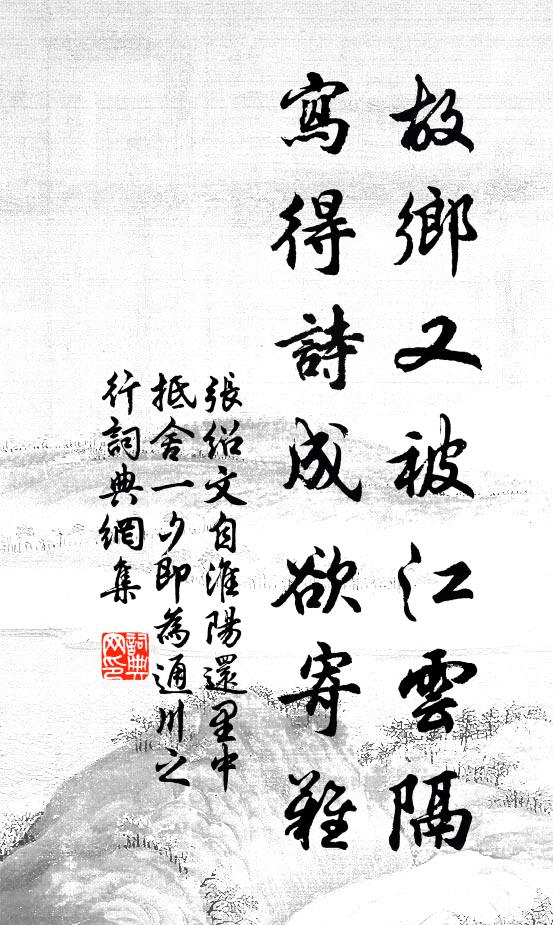 故鄉又被江雲隔
寫得詩成欲寄難
張紹文自淮陽還里中
抵舍一夕即為通川之
行詞典網集
詞典网印